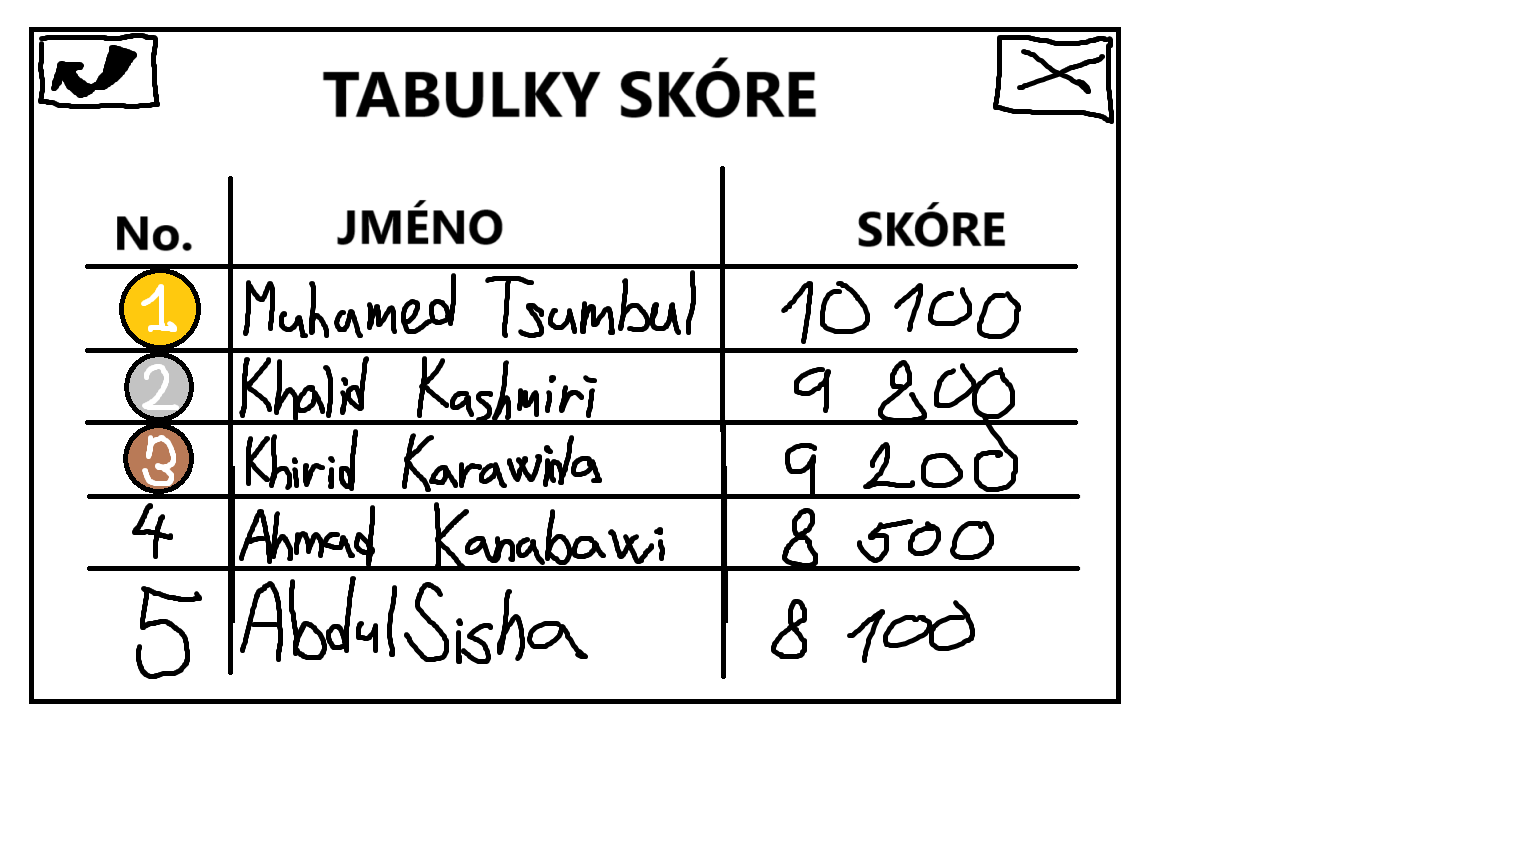 TABULKY SKÓRE
No. JMÉNO SKÓRE
1 Muhamed Tsumbul 10 100
2 Khalid Kashmiri 9 800
3 Khirid Karawida 9 200
4 Ahmad Kanabawi 8 500
5 Abdul Sisha 8 100